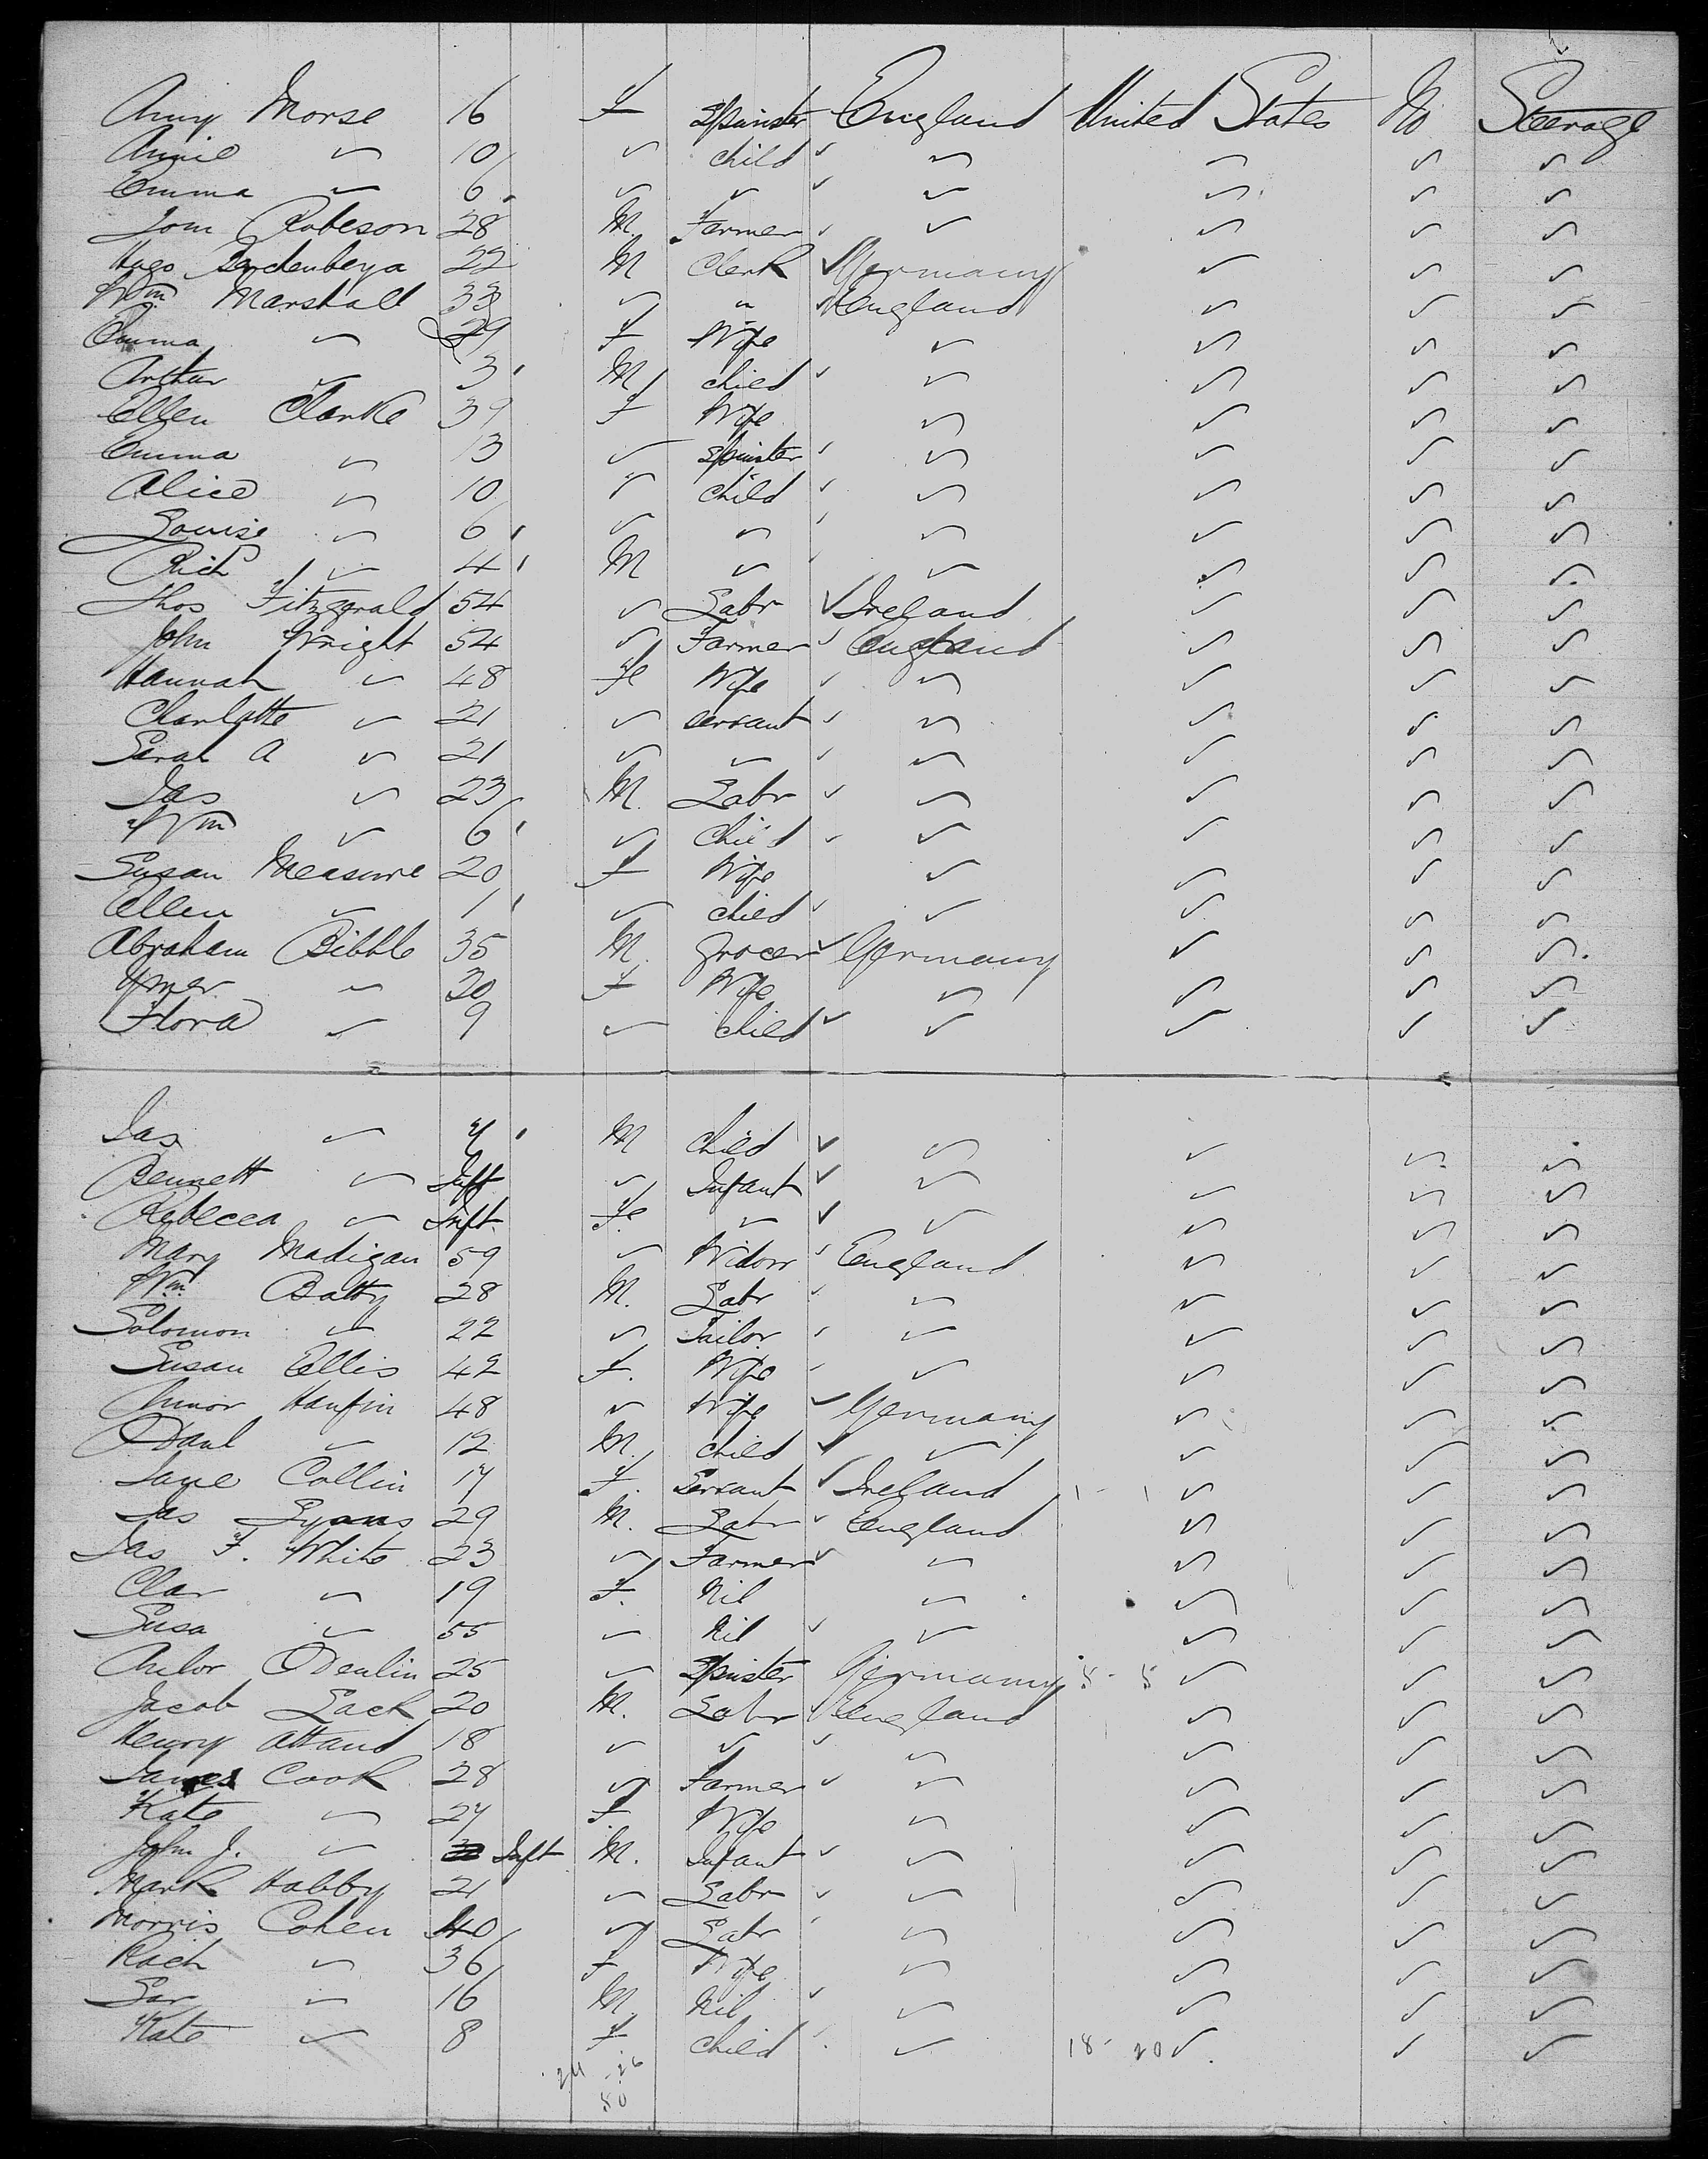 Amy Morse 16 F Spinster England United States No Steerage
Annie " 10 " child " " " "
Emma " 6 " " " " " "
Tom Robeson 28 M. Farmer " " " "
Hugo 22 M Clerk Germany " " "
Wm Marshall 33 " " England " " "
Emma " 29 F Wife " " " "
Arthur " 3 M child " " " "
Ellen Clarke 39 F Wife " " " "
Emma " 13 " Spinster " " " "
Alice " 10 " child " " " "
Louise " 6 " " " " " "
Rich " 4 M " " " " "
Thos Fitzgerald 54 " Labr Ireland " " "
John Wright 54 " Farmer England " " "
Hannah " 48 Fe Wife " " " "
Charlotte " 21 " servant " " " "
Sarah A " 21 " " " " " "
Jas " 23 M. Labr " " " "
Wm " 6 " child " " " "
Susan Measure 20 F Wife " " " "
Ellen " 1 " child " " " "
Abraham Bibble 35 M. grocer Germany " " "
" F Wife " " " "
Flora " 9 " child " " " "
Jas " M child " " " "
Bennett " Inft " Infant " " " "
Rebecca " Inft. Fe " " " " "
Mary Madigan 59 " Widow England " " "
Wm Batty 28 M. Labr " " " "
Solomon " 22 " Tailor " " " "
Susan Ellis 42 F. Wife " " " "
Haufin 48 " Wife Germany " " "
" 12 M. child " " " "
Jane Collin 17 F. Servant Ireland " " "
Jas Lyons 29 M. Labr England " " "
Jas F. White 23 " Farmer " " " "
Clar " 19 F. Nil " " " "
Susa " 55 " Nil " " " "
25 " Spinster Germany " " "
Jacob Lack 20 M. Labr England " " "
Henry Attand 18 " " " " " "
James Cook 28 " Farmer " " " "
Kate " 27 F. Wife " " " "
John J. " Inft M. Infant " " " "
Mark Habby 21 " Labr " " " "
Morris Cohen 40 " Labr " " " "
Rach " 36 F Wife " " " "
Sar " 16 M. Nil " " " "
Kate " 8 F child " 18 - 20 " " "
24 - 26
50